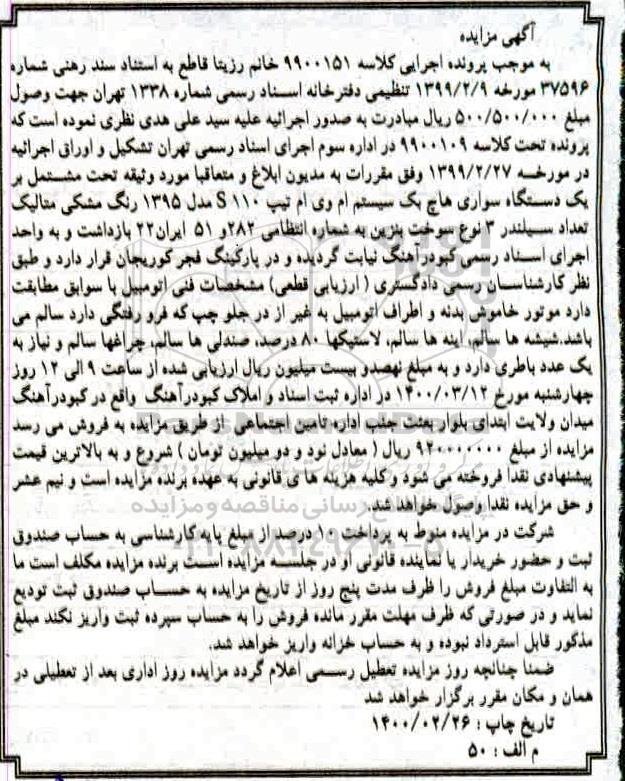 آگهی مزایده
به موجب پرونده اجرایی کلاسه ۹۹۰۰۱۵۱ خانم رزیتا قاطع به استناد سند رهنی شماره
۳۷۵۹۶ مورخه ۱۳۹۹/۲/۹ تنظیمی دفترخانه اسناد رسمی شماره ۱۳۳۸ تهران جهت وصول
مبلغ ۵۰۰/۵۰۰/۰۰۰ ریال مبادرت به صدور اجرائیه علیه سید علی هدی نظری نموده است که
پرونده تحت کلاسه ۹۹۰۰۱۰۹ در اداره سوم اجرای اسناد رسمی تهران تشکیل و اوراق اجرائیه
در مورخه ۱۳۹۹/۲/۲۷ وفق مقررات به مدیون ابلاغ و متعاقبا مورد وثیقه تحت مشتمل بر
یک دستگاه سواری هاچ بک سیستم ام وی ام تیپ S ۱۱۰ مدل ۱۳۹۵ رنگ مشکی متالیک
تعداد سیلندر ۳ نوع سوخت بنزین به شماره انتظامی ۲۸۲و ۵۱ ایران۲۲ بازداشت و به واحد
اجرای اسناد رسمی کبودرآهنگ نیابت گردیده و در پارکینگ فجر کوریجان قرار دارد و طبق
نظر کارشناسان رسمی دادگستری ( ارزیابی قطعی) مشخصات فنی اتومبیل با سوابق مطابقت
دارد موتور خاموش بدنه و اطراف اتومبیل به غیر از در جلو چپ که فرو رفتگی دارد سالم می
باشد.شیشه ها سالم، اینه ها سالم، لاستیکها ۸۰ درصد، صندلی ها سالم، چراغها سالم و نیاز به
یک عدد باطری دارد و به مبلغ نهصدو بیست میلیون ریال ارزیابی شده از ساعت ۹ الی ۱۲ روز
چهارشنبه مورخ ۱۴۰۰/۰۳/۱۲ در اداره ثبت اسناد و املاک کبودرآهنگ واقع در کبودرآهنگ
میدان ولایت ابتدای بلوار بعثت جنب اداره تامین اجتماعی از طریق مزایده به فروش می رسد
مزایده از مبلغ ۹۲۰۰۰۰۰۰۰ ریال ( معادل نود و دو میلیون تومان ) شروع و به بالاترین قیمت
پیشنهادی نقدا فروخته می شود وکلیه هزینه ها ی قانونی به عهده برنده مزایده است و نیم عشر
و حق مزایده نقدا وصول خواهد شد.
شرکت در مزایده منوط به پرداخت ۱۰ درصد از مبلغ پایه کارشناسی به حساب صندوق
ثبت و حضور خریدار یا نماینده قانونی او در جلسه مزایده است برنده مزایده مکلف است ما
به التفاوت مبلغ فروش را ظرف مدت پنج روز از تاریخ مزایده به حساب صندوق ثبت تودیع
نماید و در صورتی که ظرف مهلت مقرر مانده فروش را به حساب سپرده ثبت واریز نکند مبلغ
مذکور قابل استرداد نبوده و به حساب خزانه واریز خواهد شد.
ضمنا چنانچه روز مزایده تعطیل رسمی اعلام گردد مزایده روز اداری بعد از تعطیلی در
همان و مکان مقرر برگزار خواهد شد
تاریخ چاپ : ۱۴۰۰/۰۲/۲۶
م الف : ۵۰